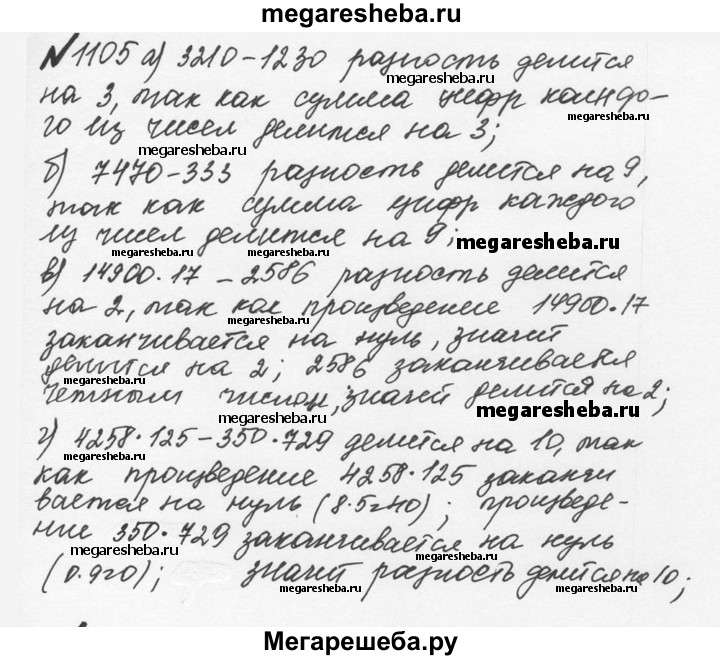 megaresheba.ru
№1105 а) 3210-1230 разность делится
megaresheba.ru
на 3, так как сумма цифр каждо-
megaresheba.ru
го из чисел делится на 3;
megaresheba.ru
б) 7470-333 разность делится на 9,
megaresheba.ru
так как сумма цифр каждого
из чисел делится на 9;
megaresheba.ru
в) 14900·17 - 2586 разность делится
megaresheba.ru
на 2, так как произведение 14900·17
megaresheba.ru
заканчивается на нуль, значит
делится на 2; 2586 заканчивается
megaresheba.ru
четным числом, значит делится на 2;
megaresheba.ru
megaresheba.ru
г) 4258·125-350·729 делится на 10, так
megaresheba.ru
как произведение 4258·125 заканчи
megaresheba.ru
вается на нуль (8·5=40); произведе-
megaresheba.ru
ние 350·729 заканчивается на нуль
megaresheba.ru
megaresheba.ru
(0·9=0); значит разность делится на 10;
megaresheba.ru
megaresheba.ru
Мегарешеба.ру